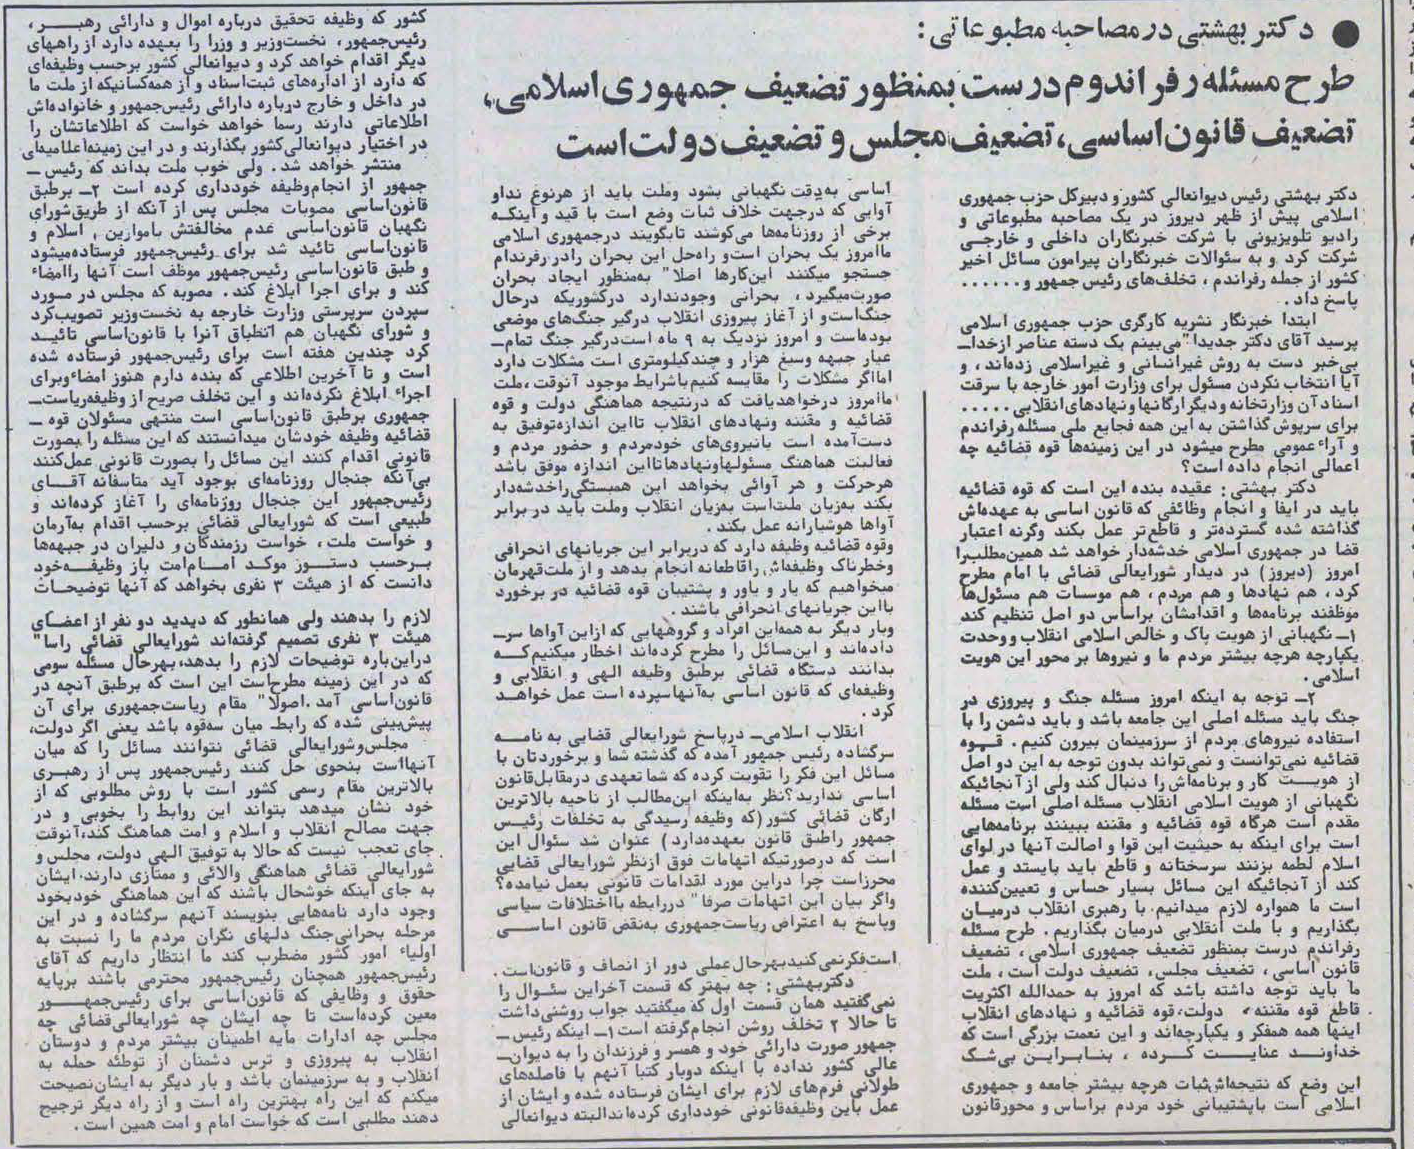 ● دکتر بهشتی در مصاحبه مطبوعاتی:
طرح مسئله رفراندوم درست بمنظور تضعیف جمهوری اسلامی،
تضعیف قانون اساسی، تضعیف مجلس و تضعیف دولت است
دکتر بهشتی رئیس دیوانعالی کشور و دبیرکل حزب جمهوری
اسلامی پیش از ظهر دیروز در یک مصاحبه مطبوعاتی و
رادیو تلویزیونی با شرکت خبرنگاران داخلی و خارجی
شرکت کرد و به سئوالات خبرنگاران پیرامون مسائل اخیر
کشور از جمله رفراندم، تخلف‌های رئیس جمهور و......
پاسخ داد.
ابتدا خبرنگار نشریه کارگری حزب جمهوری اسلامی
پرسید آقای دکتر جدیدا" می‌بینم یک دسته عناصر ازخدا-
بی‌خبر دست به روش غیرانسانی و غیراسلامی زده‌اند، و
آیا انتخاب نکردن مسئول برای وزارت امور خارجه با سرقت
اسناد آن وزارتخانه و دیگر ارگانها و نهادهای انقلابی.....
برای سرپوش گذاشتن به این همه فجایع ملی مسئله رفراندم
و آراء عمومی مطرح میشود در این زمینه‌ها قوه قضائیه چه
اعمالی انجام داده است؟
دکتر بهشتی: عقیده بنده این است که قوه قضائیه
باید در ایفا و انجام وظائفی که قانون اساسی به عهده‌اش
گذاشته شده گسترده‌تر و قاطع‌تر عمل بکند وگرنه اعتبار
قضا در جمهوری اسلامی خدشه‌دار خواهد شد همین‌مطلب‌را
امروز (دیروز) در دیدار شورایعالی قضائی با امام مطرح
کرد، هم نهادها و هم مردم، هم موسسات هم مسئول‌ها
موظفند برنامه‌ها و اقدامشان براساس دو اصل تنظیم کند
۱- نگهبانی از هویت پاک و خالص اسلامی انقلاب و وحدت
یکپارچه هرچه بیشتر مردم ما و نیروها بر محور این هویت
اسلامی.
۲- توجه به اینکه امروز مسئله جنگ و پیروزی در
جنگ باید مسئله اصلی این جامعه باشد و باید دشمن را با
استفاده نیروهای مردم از سرزمینمان بیرون کنیم. قوه
قضائیه نمی‌توانست و نمی‌تواند بدون توجه به این دو اصل
از هویت کار و برنامه‌اش را دنبال کند ولی از آنجائیکه
نگهبانی از هویت اسلامی انقلاب مسئله اصلی است مسئله
مقدم است هرگاه قوه قضائیه و مقننه ببینند برنامه‌هایی
است برای اینکه به حیثیت این قوا و اصالت آنها در لوای
اسلام لطمه بزنند سرسختانه و قاطع باید بایستد و عمل
کند از آنجائیکه این مسائل بسیار حساس و تعیین‌کننده
است ما همواره لازم میدانیم با رهبری انقلاب درمیان
بگذاریم و با ملت انقلابی درمیان بگذاریم. طرح مسئله
رفراندم درست بمنظور تضعیف جمهوری اسلامی، تضعیف
قانون اساسی، تضعیف مجلس، تضعیف دولت است، ملت
ما باید توجه داشته باشد که امروز به حمدالله اکثریت
قاطع قوه مقننه، دولت، قوه قضائیه و نهادهای انقلاب
اینها همه همفکر و یکپارچه‌اند و این نعمت بزرگی است که
خداوند عنایت کرده، بنابراین بی‌شک
این وضع که نتیجه‌اش ثبات هرچه بیشتر جامعه و جمهوری
اسلامی است باپشتیبانی خود مردم براساس و محورقانون
اساسی به‌دقت نگهبانی بشود وملت باید از هرنوع نداو
آوایی که درجهت خلاف ثبات وضع است با قید و اینکه
برخی از روزنامه‌ها می‌کوشند تابگویند درجمهوری اسلامی
ماامروز یک بحران است‌و راه‌حل این بحران رادر رفراندام
جستجو میکنند این‌کارها اصلا" به‌منظور ایجاد بحران
صورت‌میگیرد، بحرانی وجودندارد درکشوریکه درحال
جنگ‌است‌و از آغاز پیروزی انقلاب درگیر جنگ‌های موضعی
بوده‌است و امروز نزدیک به ۹ ماه است‌درگیر جنگ تمام-
عیار جبهه وسیع هزار و چندکیلومتری است مشکلات دارد
امااگر مشکلات را مقایسه کنیم باشرایط موجود آنوقت،ملت
ماامروز درخواهدیافت که درنتیجه هماهنگی دولت و قوه
قضائیه و مقننه ونهادهای انقلاب تااین اندازه‌توفیق به
دست‌آمده است بانیروی‌های خودمردم و حضور مردم و
فعالیت هماهنگ مسئولهاونهادهاتااین اندازه موفق باشد
هرحرکت و هر آوائی بخواهد این همبستگی‌راخدشه‌دار
بکند به‌زیان ملت‌است به‌زیان انقلاب وملت باید در برابر
آواها هوشیارانه عمل بکند.
وقوه قضائیه وظیفه دارد که دربرابر این جریانهای انحرافی
وخطرناک وظیفه‌اش راقاطعانه انجام بدهد و از ملت‌قهرمان
میخواهیم که یار و یاور و پشتیبان قوه قضائیه در برخورد
بااین جریانهای انحرافی باشند.
وبار دیگر به همه‌این افراد و گروههایی که ازاین آواها سر-
داده‌اند و این‌مسائل را مطرح کرده‌اند اخطار میکنیم‌که
بدانند دستگاه قضائی برطبق وظیفه الهی و انقلابی و
وظیفه‌ای که قانون اساسی به‌آنهاسپرده است عمل خواهد
کرد.
انقلاب اسلامی- درپاسخ شورایعالی قضایی به نامه
سرگشاده رئیس جمهور آمده که گذشته شما و برخوردتان با
مسائل این فکر را تقویت کرده که شما تعهدی درمقابل‌قانون
اساسی ندارید؟نظر به‌اینکه این‌مطالب از ناحیه بالاترین
ارگان قضائی کشور(که وظیفه رسیدگی به تخلفات رئیس
جمهور راطبق قانون بعهده‌دارد) عنوان شد سئوال این
است که درصورتیکه اتهامات فوق ازنظر شورایعالی قضایی
محرزاست چرا دراین مورد اقدامات قانونی بعمل نیامده؟
واگر بیان این اتهامات صرفا" دررابطه بااختلافات سیاسی
وپاسخ به اعتراض ریاست‌جمهوری به‌نقض قانون اساسی
است‌فکرنمی‌کنیدبهرحال‌عملی دور از انصاف و قانون‌است.
دکتربهشتی: چه بهتر که قسمت آخراین سئوال را
نمی‌گفتید همان قسمت اول که میگفتید جواب روشنی‌داشت
تا حالا ۲ تخلف روشن انجام‌گرفته است ۱- اینکه رئیس-
جمهور صورت دارائی خود و همسر و فرزندان را به دیوان-
عالی کشور نداده با اینکه دوبار کتبا آنهم با فاصله‌های
طولانی فرم‌های لازم برای ایشان فرستاده شده و ایشان از
عمل باین وظیفه‌قانونی خودداری کرده‌اندالبته دیوانعالی
کشور که وظیفه تحقیق درباره اموال و دارائی رهبر،
رئیس‌جمهور، نخست‌وزیر و وزرا را بعهده دارد از راههای
دیگر اقدام خواهد کرد و دیوانعالی کشور برحسب وظیفه‌ای
که دارد از اداره‌های ثبت‌اسناد و از همه‌کسانیکه از ملت ما
در داخل و خارج درباره دارائی رئیس‌جمهور و خانواده‌اش
اطلاعاتی دارند رسما خواهد خواست که اطلاعاتشان را
در اختیار دیوانعالی‌کشور بگذارند و در این زمینه‌اعلامیه‌ای
منتشر خواهد شد. ولی خوب ملت بداند که رئیس-
جمهور از انجام‌وظیفه خودداری کرده است ۲- برطبق
قانون‌اساسی مصوبات مجلس پس از آنکه از طریق‌شورای
نگهبان قانون‌اساسی عدم مخالفتش باموازین اسلام و
قانون‌اساسی تائید شد برای رئیس‌جمهور فرستاده‌میشود
و طبق قانون‌اساسی رئیس‌جمهور موظف است آنها راامضاء
کند و برای اجرا ابلاغ کند. مصوبه که مجلس در مورد
سپردن سرپرستی وزارت خارجه به نخست‌وزیر تصویب‌کرد
و شورای نگهبان هم انطباق آنرا با قانون‌اساسی تائید
کرد چندین هفته است برای رئیس‌جمهور فرستاده شده
است و تا آخرین اطلاعی که بنده دارم هنوز امضاءوبرای
اجراء ابلاغ نکرده‌اند و این تخلف صریح از وظیفه‌ریاست-
جمهوری برطبق قانون‌اساسی است منتهی مسئولان قوه-
قضائیه وظیفه خودشان میدانستند که این مسئله را بصورت
قانونی اقدام کنند این مسائل را بصورت قانونی عمل‌کنند
بی‌آنکه جنجال روزنامه‌ای بوجود آید متاسفانه آقای
رئیس‌جمهور این جنجال روزنامه‌ای را آغاز کرده‌اند و
طبیعی است که شورایعالی قضائی برحسب اقدام به‌آرمان
و خواست ملت، خواست رزمندگان‌و دلیران در جبهه‌ها
برحسب دستور موکد امام‌امت باز وظیفه‌خود
دانست که از هیئت ۳ نفری بخواهد که آنها توضیحات
لازم را بدهند ولی همانطور که دیدید دو نفر از اعضای
هیئت ۳ نفری تصمیم گرفته‌اند شورایعالی قضائی راسا"
دراین‌باره توضیحات لازم را بدهد،بهرحال مسئله سومی
که در این زمینه مطرح‌است این است که برطبق آنچه در
قانون‌اساسی آمد.اصولا" مقام ریاست‌جمهوری برای آن
پیش‌بینی شده که رابط میان سه‌قوه باشد یعنی اگر دولت،
مجلس‌وشورایعالی قضائی نتوانند مسائل را که میان
آنهااست بنحوی حل کنند رئیس‌جمهور پس از رهبری
بالاترین مقام رسمی کشور است با روش مطلوبی که از
خود نشان میدهد بتواند این روابط را بخوبی و در
جهت مصالح انقلاب و اسلام و امت هماهنگ کند،آنوقت
جای تعجب نیست که حالا به توفیق الهی دولت، مجلس و
شورایعالی قضائی هماهنگی والائی و ممتازی دارند.ایشان
به جای اینکه خوشحال باشند که این هماهنگی خودبخود
وجود دارد نامه‌هایی بنویسند آنهم سرگشاده و در این
مرحله بحرانی‌جنگ دلهای نگران مردم ما را نسبت به
اولیاء امور کشور مضطرب کند ما انتظار داریم که آقای
رئیس‌جمهور همچنان رئیس‌جمهور محترمی باشند برپایه
حقوق و وظایفی که قانون‌اساسی برای رئیس‌جمهور
معین کرده‌است تا چه ایشان چه شورایعالی‌قضائی چه
مجلس چه ادارات مایه اطمینان بیشتر مردم و دوستان
انقلاب به پیروزی و ترس دشمنان از توطئه حمله به
انقلاب و به سرزمینمان باشد و بار دیگر به ایشان‌نصیحت
میکنم که این راه بهترین راه است و از راه دیگر ترجیح
دهند مطلبی است که خواست امام و امت همین است.